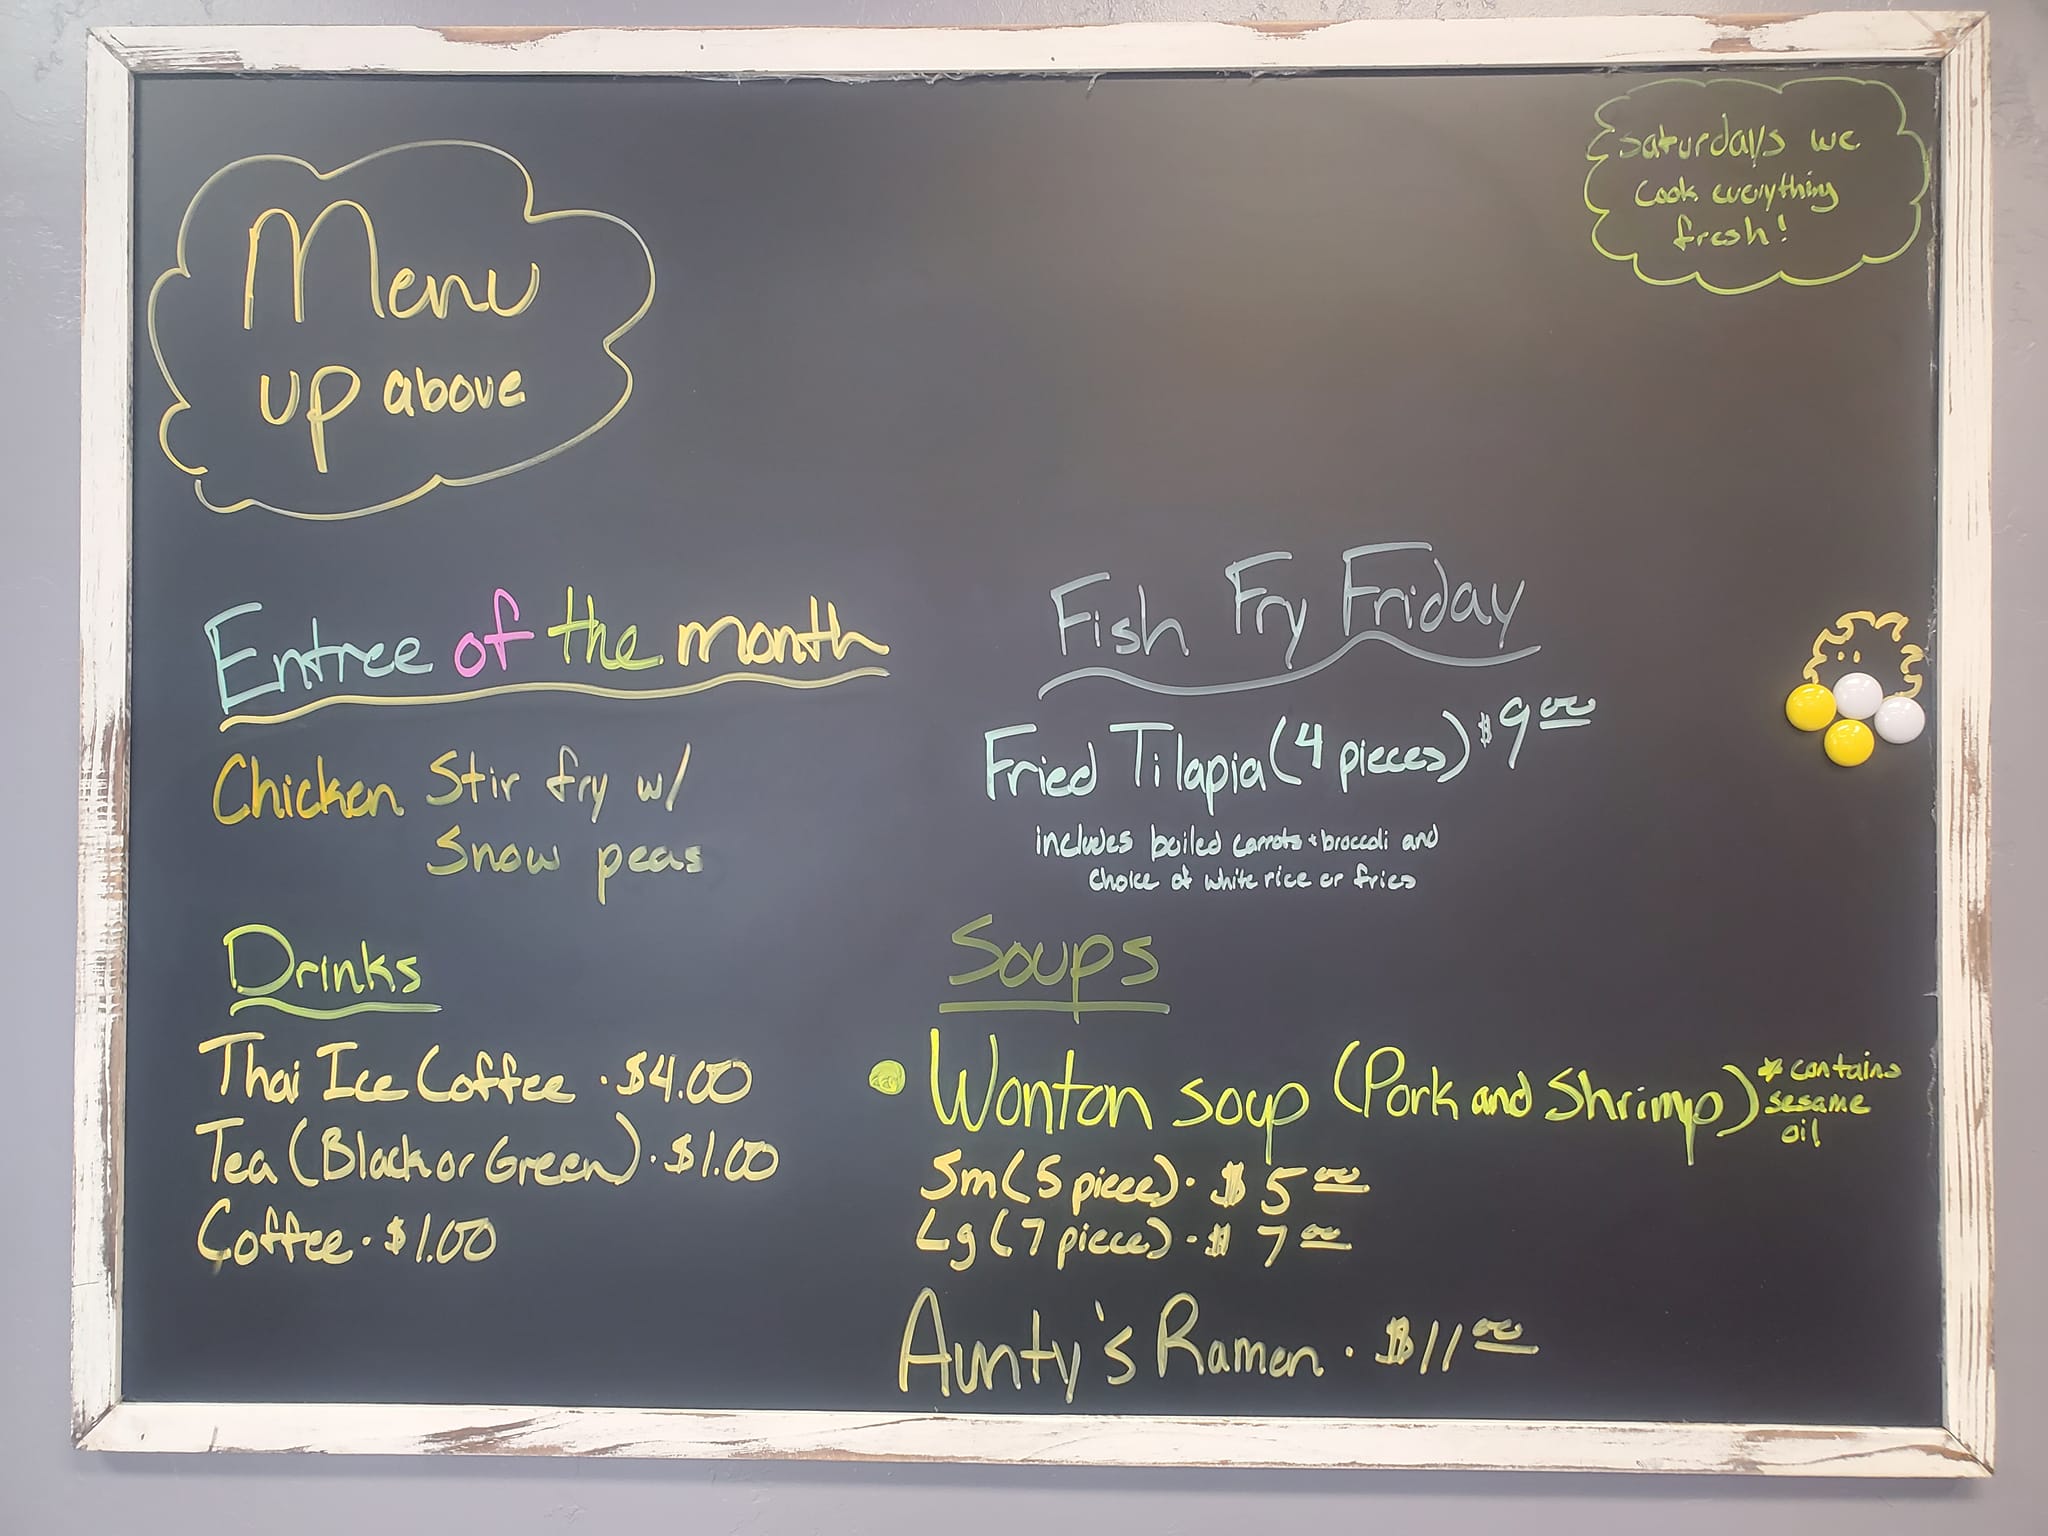 Menu
up above
Saturdays we
cook everything
fresh!
Entree of the month
Chicken Stir fry w/
Snow peas
Drinks
Thai Ice Coffee · $4.00
Tea (Black or Green) · $1.00
Coffee · $1.00
Fish Fry Friday
Fried Tilapia (4 pieces) $9.00
includes boiled carrots + broccoli and
choice of white rice or fries
Soups
• Wonton soup (Pork and Shrimp) * contains
sesame
oil
Sm (5 piece) · $5.00
Lg (7 piece) · $7.00
Aunty's Ramen · $11.00